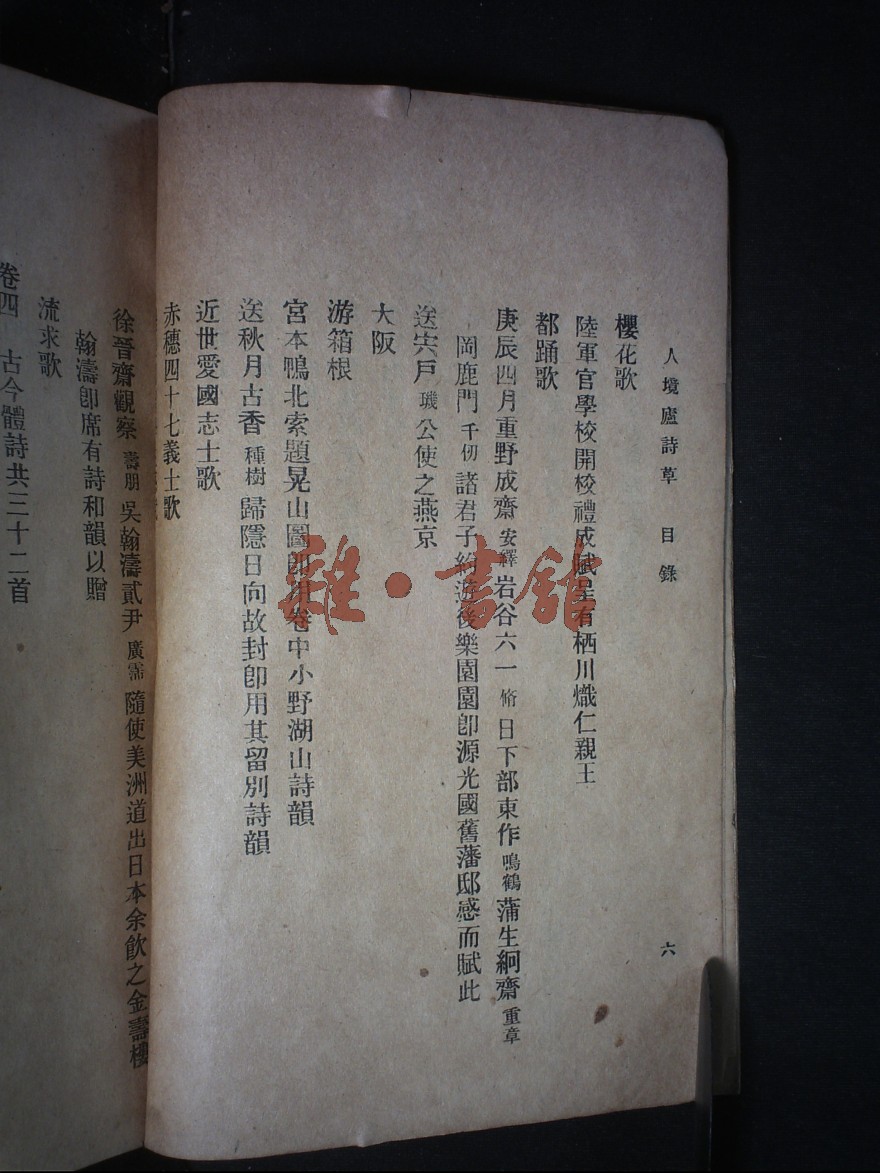 人境廬詩草　目錄　六
櫻花歌
陸軍官學校開校禮成賦呈有栖川熾仁親王
都踊歌
庚辰四月重野成齋安繹岩谷六一脩日下部東作鳴鶴蒲生絅齋重章
岡鹿門千仞諸君子約遊後樂園園即源光國舊藩邸感而賦此
送宍戶璣公使之燕京
大阪
游箱根
宮本鴨北索題晃山圖即用卷中小野湖山詩韻
送秋月古香種樹歸隱日向故封即用其留別詩韻
近世愛國志士歌
赤穗四十七義士歌
徐晉齋觀察壽朋吳翰濤貳尹廣霈隨使美洲道出日本余飲之金壽樓
翰濤即席有詩和韻以贈
流求歌
卷四　古今體詩共三十二首
雜·書館